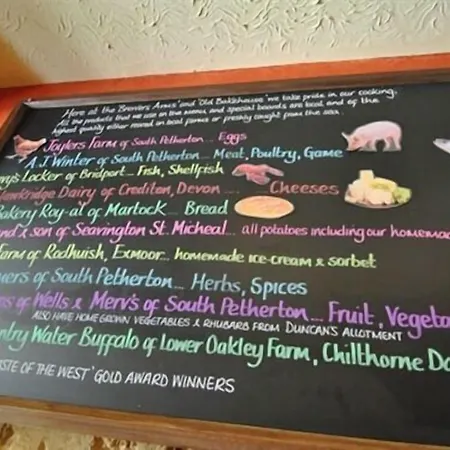 Here at the 'Brewers Arms' and 'Old Bakehouse' we take pride in our cooking.
All the products that we use on the menu, and special boards are local and of the
highest quality either reared on local farms or freshly caught from the sea.
Joylers Farm of South Petherton.... Eggs
A.J Winter of South Petherton... Meat, Poultry, Game
ry's Locker of Bridport... Fish, Shellfish
Hawkridge Dairy of Crediton, Devon .... Cheeses
Bakery Roy-al of Martock... Bread
nd & son of Seavington St. Micheal... all potatoes including our homemad
Farm of Rodhuish, Exmoor... homemade ice-cream & sorbet
ers of South Petherton... Herbs, Spices
ns of Wells & Merv's of South Petherton.... Fruit, Vegeta
ALSO HAVE HOME GROWN VEGETABLES & RHUBARB FROM DUNCAN'S ALLOTMENT
ntry Water Buffalo of Lower Oakley Farm, Chilthorne Do
ASTE OF THE WEST' GOLD AWARD WINNERS